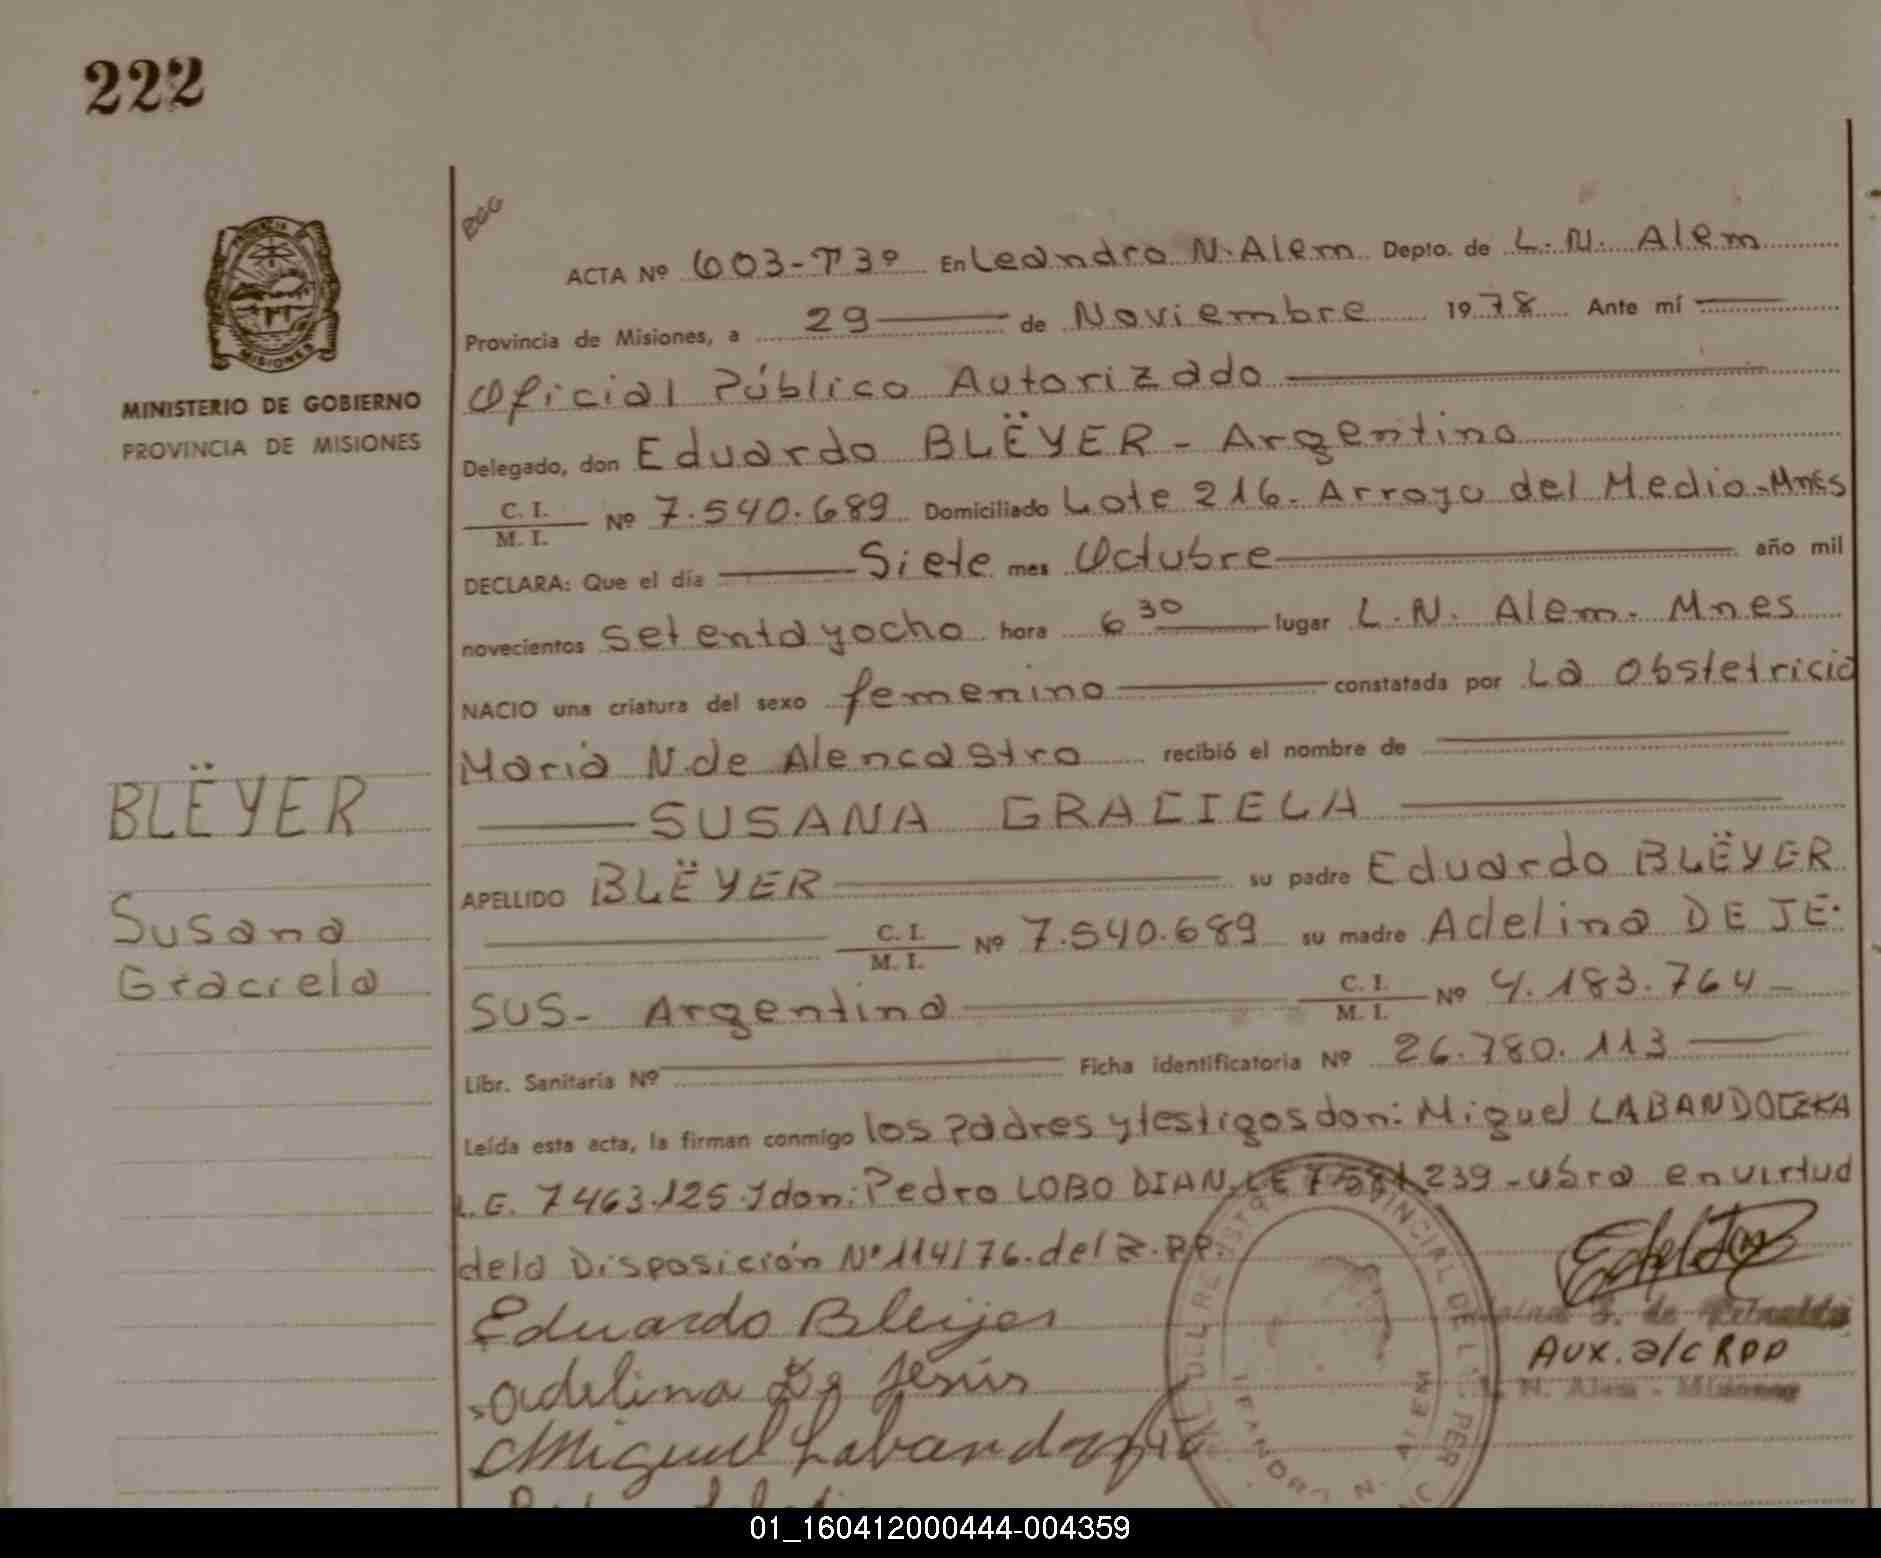 222
MINISTERIO DE GOBIERNO
PROVINCIA DE MISIONES
MISIONES
BLËYER
Susana
Graciela
ACTA Nº 603-Tº3º En Leandro N. Alem Depto. de L. N. Alem
Provincia de Misiones, a 29 de Noviembre 1978 Ante mí
Oficial Público Autorizado
Delegado, don Eduardo BLËYER - Argentino
C. I.
M. I. Nº 7.540.689 Domiciliado Lote 216. Arroyo del Medio-Mnes
DECLARA: Que el día Siete mes Octubre año mil
novecientos setenta y ocho hora 6 30 lugar L. N. Alem. Mnes
NACIO una criatura del sexo femenino constatada por La obstetricia
Maria N. de Alencastro recibió el nombre de
SUSANA GRACIELA
APELLIDO BLËYER su padre Eduardo BLËYER
C. I.
M. I. Nº 7.540.689 su madre Adelina DE JE-
SUS- Argentina C. I.
M. I. Nº 4.183.764
Libr. Sanitaria Nº Ficha identificatoria Nº 26.780.113
Leída esta acta, la firman conmigo los padres y testigos don: Miguel
L.E. 7463.125. y don: Pedro LOBO DIAN, LE 239 - Obra en virtud
de la Disposición Nº 114/76. del R.P.P.
Eduardo Bleyer
adelina De Jesús
Miguel
AUX. a/c RPP
L. N. Alem - Misiones
LEANDRO N. ALEM
01_160412000444-004359